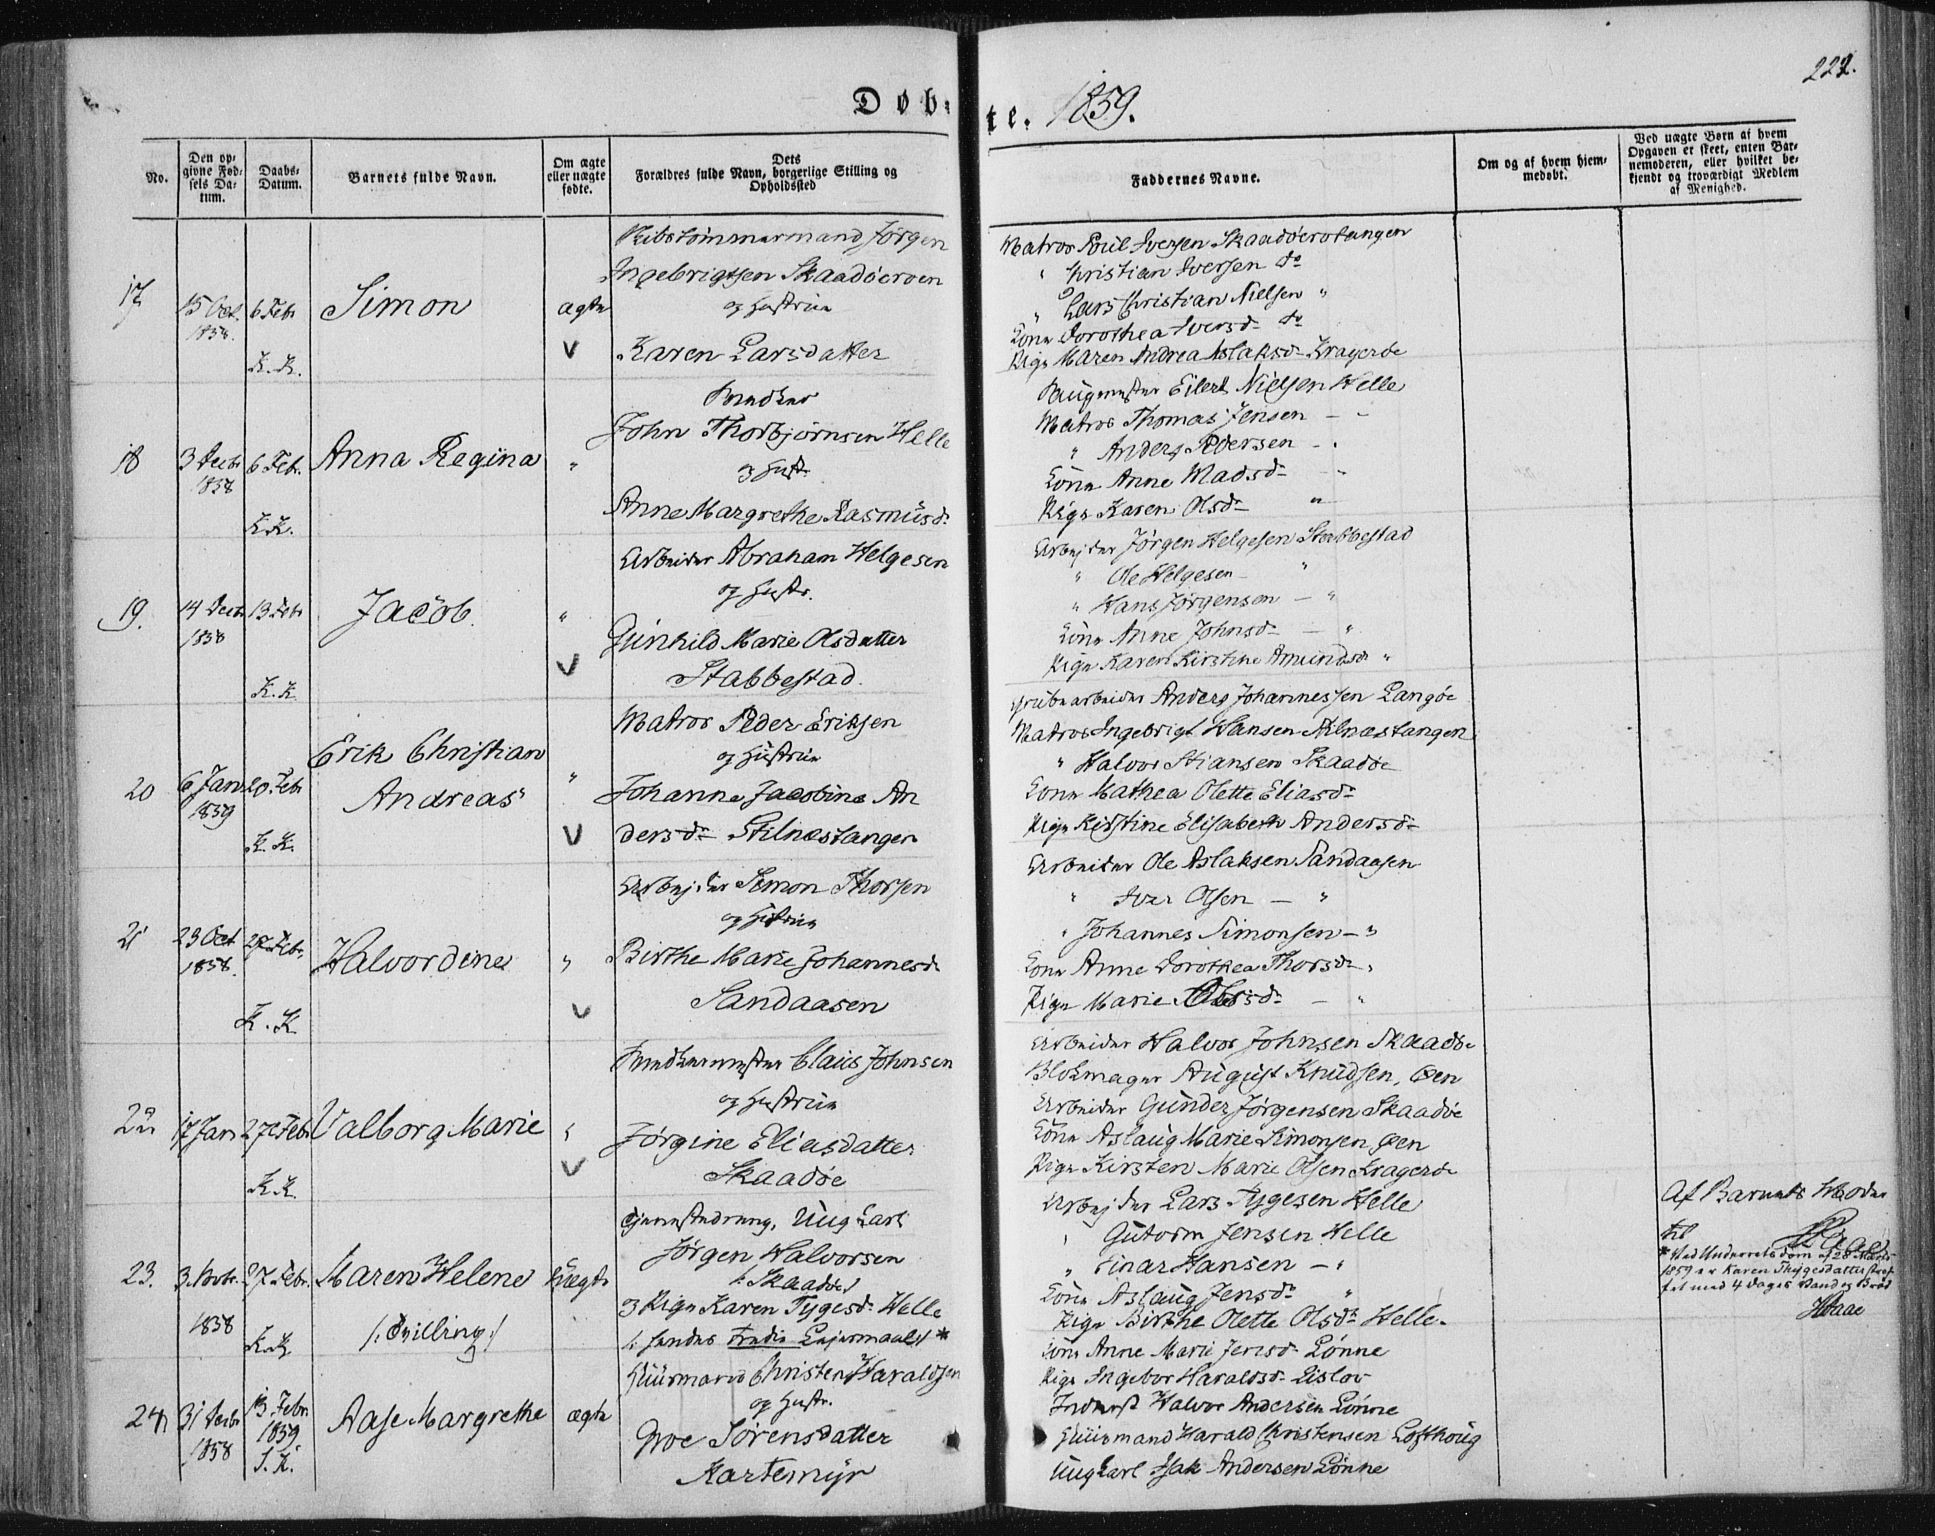 222.
Døb-
te. 1859.
No.
Den op-
givne Fød-
sels Da-
tum.
Daabs-
Datum.
Barnets fulde Navn.
Om ægte
eller uægte
fødte.
Dets
Forældres fulde Navn, borgerlige Stilling og
Opholdssted
Faddernes Navne.
Om og af hvem hjem-
medøbt.
Ved uægte Børn af hvem
Opgaven er skeet, enten Bar-
nemoderen, eller hvilket be-
kjendt og troværdigt Medlem
af Menighed.
17
15 Oct.
1858.
6 Febr
K. K.
Simon
ægte
V
Skibstømmermand Jørgen
Ingebrigtsen Skaadøeroen
og Hustrue
Karen Larsdatter
Matros Poul Iversen Skaadøerotangen
" Christian Iversen do
" Lars Christian Nielsen "
Kone Dorothea Iversd. do
Pige Maren Andrea Aslaksd. Kragerøe
18
3 Decbr
1858
6 Febr.
K.K.
Anna Regina
"
John Thorbjørnsen Helle
og Hust.
Anne Margrethe Rasmusd.
Eilert Nielsen Helle
Matros Thomas Jensen - "
" Anders Pedersen - "
Kone Anne Madsd. - "
Pige Karen Olsd. "
19.
14 Decbr
1858
13 Febr
K. K.
Jacob
"
V
Arbeider Abraham Helgesen
og Hustr.
Gunhild Marie Olsdatter
Stabbestad.
Arbeider Jørgen Helgesen Stabbestad
" Ole Helgesen - "
" Hans Jørgensen - "
Kone Anne Johnsd. - "
Pige Karen Kirstine Amundsd. "
20
6 Jan
1859
20 Febr
K. K.
Erik Christian
Andreas
"
V
Matros Peder Eriksen
og Hustrue
Johanne Jacobine An
dersd. Stilnæstangen
Grubearbeider Anders Johannessen Langøe
Matros Ingebrigt Hansen Stilnæstangen
" Halvor Stiansen Skaadøe
Kone Mathea Olette Eliasd.
Pige Kirstine Elisabeth Andersd.
21
23 Oct
1858.
27 Febr.
K. K.
Halvordine
"
V
Arbeider Simon Thorsen
og Hustrue
Birthe Marie Johannesd.
Sandaasen
Arbeider Ole Aslaksen Sandaasen
" Iver Olsen - "
" Johannes Simonsen - "
Kone Anne Dorothea Thorsd. "
Pige Marie Olsd. - "
22
17 Jan
27 Febr
K.K.
Valborg Marie
"
V
Claus Johnsen
og Hustrue
Jørgine Eliasdatter
Skaadøe
Arbeider Halvor Johnsen Skaadøe
Blokmager August Knudsen, Øen
Arbeider Gunder Jørgensen Skaadøe
Kone Aslaug Marie Simonsen Øen
Pige Kirsten Marie Olsen Kragerøe
23.
3. Novbr.
1858
27 Febr.
K.K.
Maren Helene
/: Tvilling:/
Uægte
Tjenestedreng, Ung Karl
Jørgen Halvorsen
/: Skaadøe/
og Pige Karen Tygesd. Helle
/: hendes tredie Leiermaal:/ *
Arbeider Lars Tygesen Helle
" Gutorm Jensen Helle
" Einar Hansen - "
Kone Aslaug Jensd. "
Pige Birthe Olette Olsd. Helle.
Af Barnets Moder
* Ved Underretsdom af 26 Marts
1859 er Karen Thygesdatter straf-
fet med 4 Dages Vand og Brød
24
31 Decbr
1858
13 Febr.
1859
S. K.
Aase Margrethe
ægte
Huusmand Christen Haraldsen
og Hustr.
Groe Sørensdatter
Kartemyr
Kone Anne Marie Jensd. Lønne
Pige Ingebor Haraldsd. Eislov
Inderst Halvor Andersen Lønne
Huusmand Harald Christensen Lofthoug
Ungkarl Isak Andersen Lønne